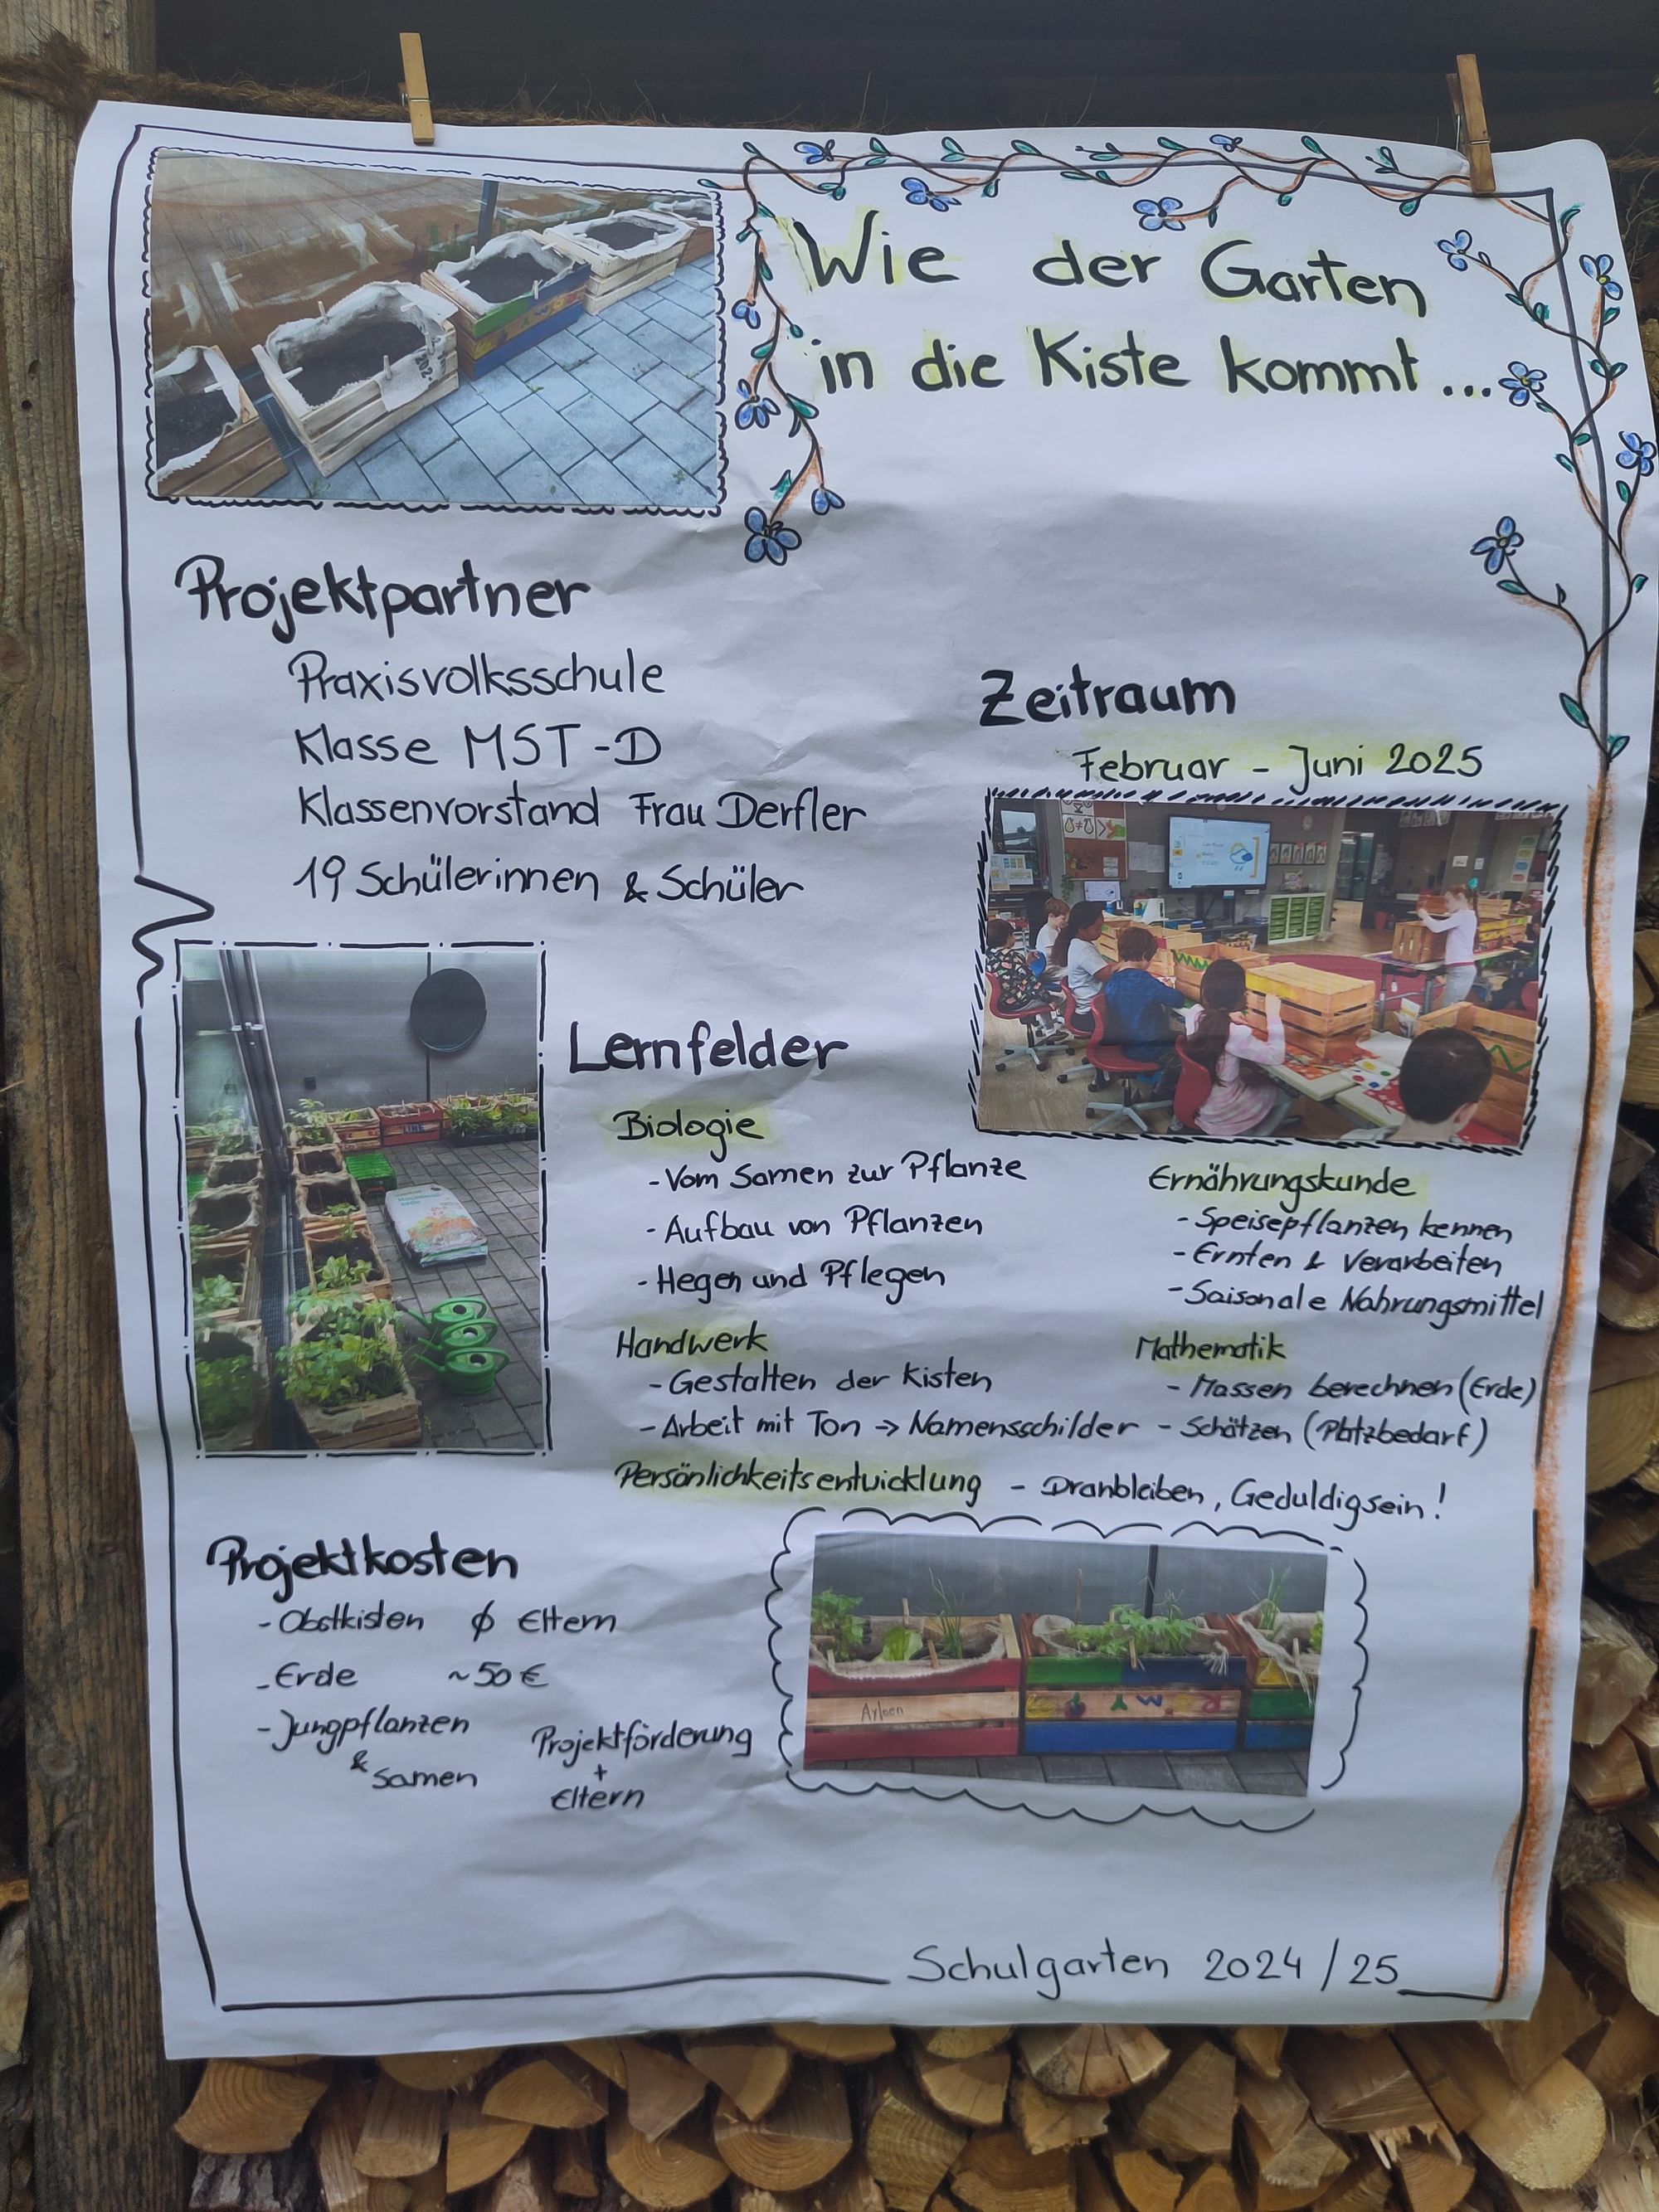 Wie der Garten
in die Kiste kommt ...
Projektpartner
Praxisvolksschule
Klasse MST-D
Klassenvorstand Frau Derfler
19 Schülerinnen & Schüler
Zeitraum
Februar - Juni 2025
Lernfelder
Biologie
- Vom Samen zur Pflanze
- Aufbau von Pflanzen
- Hegen und Pflegen
Ernährungskunde
- Speisepflanzen kennen
- Ernten & Verarbeiten
- Saisonale Nahrungsmittel
Handwerk
- Gestalten der Kisten
- Arbeit mit Ton → Namensschilder
Mathematik
- Massen berechnen (Erde)
- Schätzen (Platzbedarf)
Persönlichkeitsentwicklung - Dranbleiben, Geduldigsein!
Projektkosten
- Obstkisten ∅ Eltern
- Erde ~50 €
- Jungpflanzen
& Samen
Projektförderung
+
Eltern
Ayleen
Schulgarten 2024/25